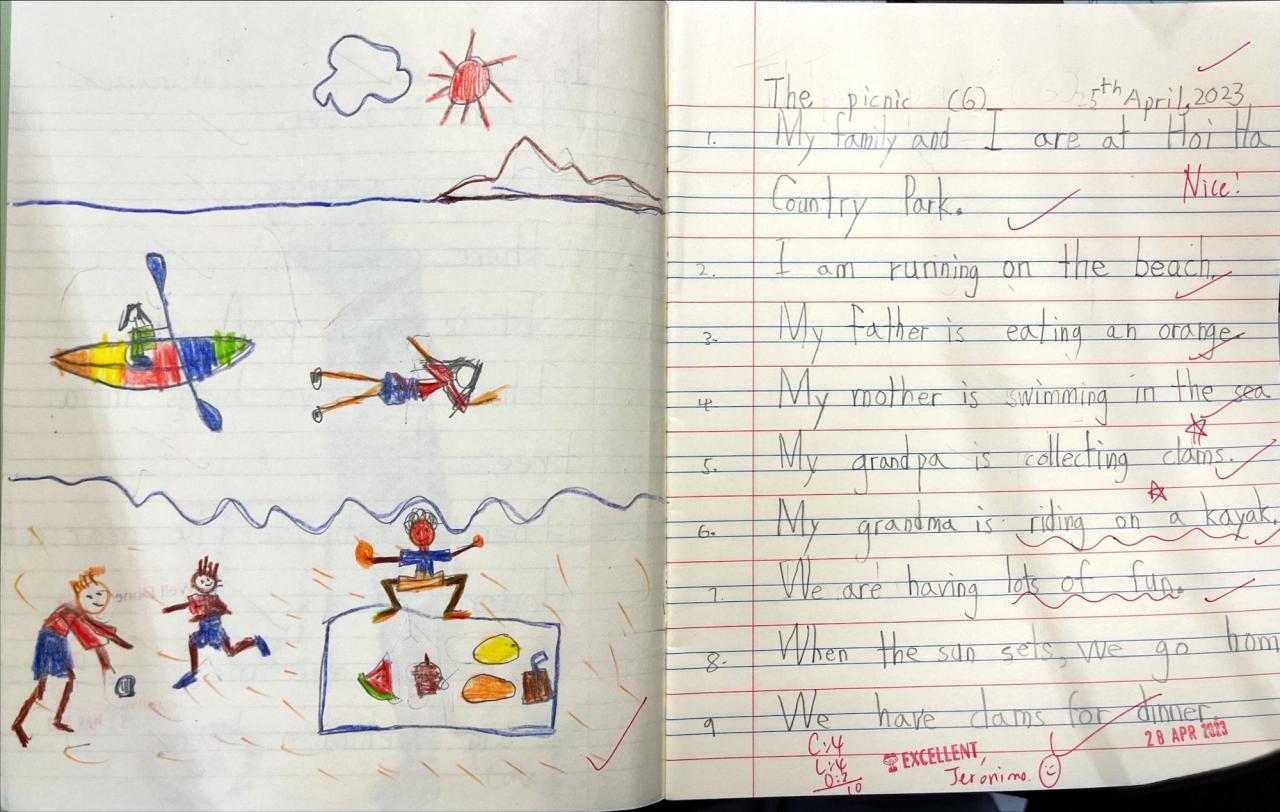 The picnic (6) 5th April, 2023
1. My family and I are at Hoi Ha
Nice!
Country Park.
2. I am running on the beach.
3. My father is eating an orange.
4. My mother is swimming in the sea
5. My grandpa is collecting clams.
6. My grandma is riding on a kayak.
7. We are having lots of fun.
8. When the sun sets, we go hom
9 We have clams for dinner.
C:4
L:4
O:2
10
EXCELLENT,
Jeronimo.
28 APR 2023